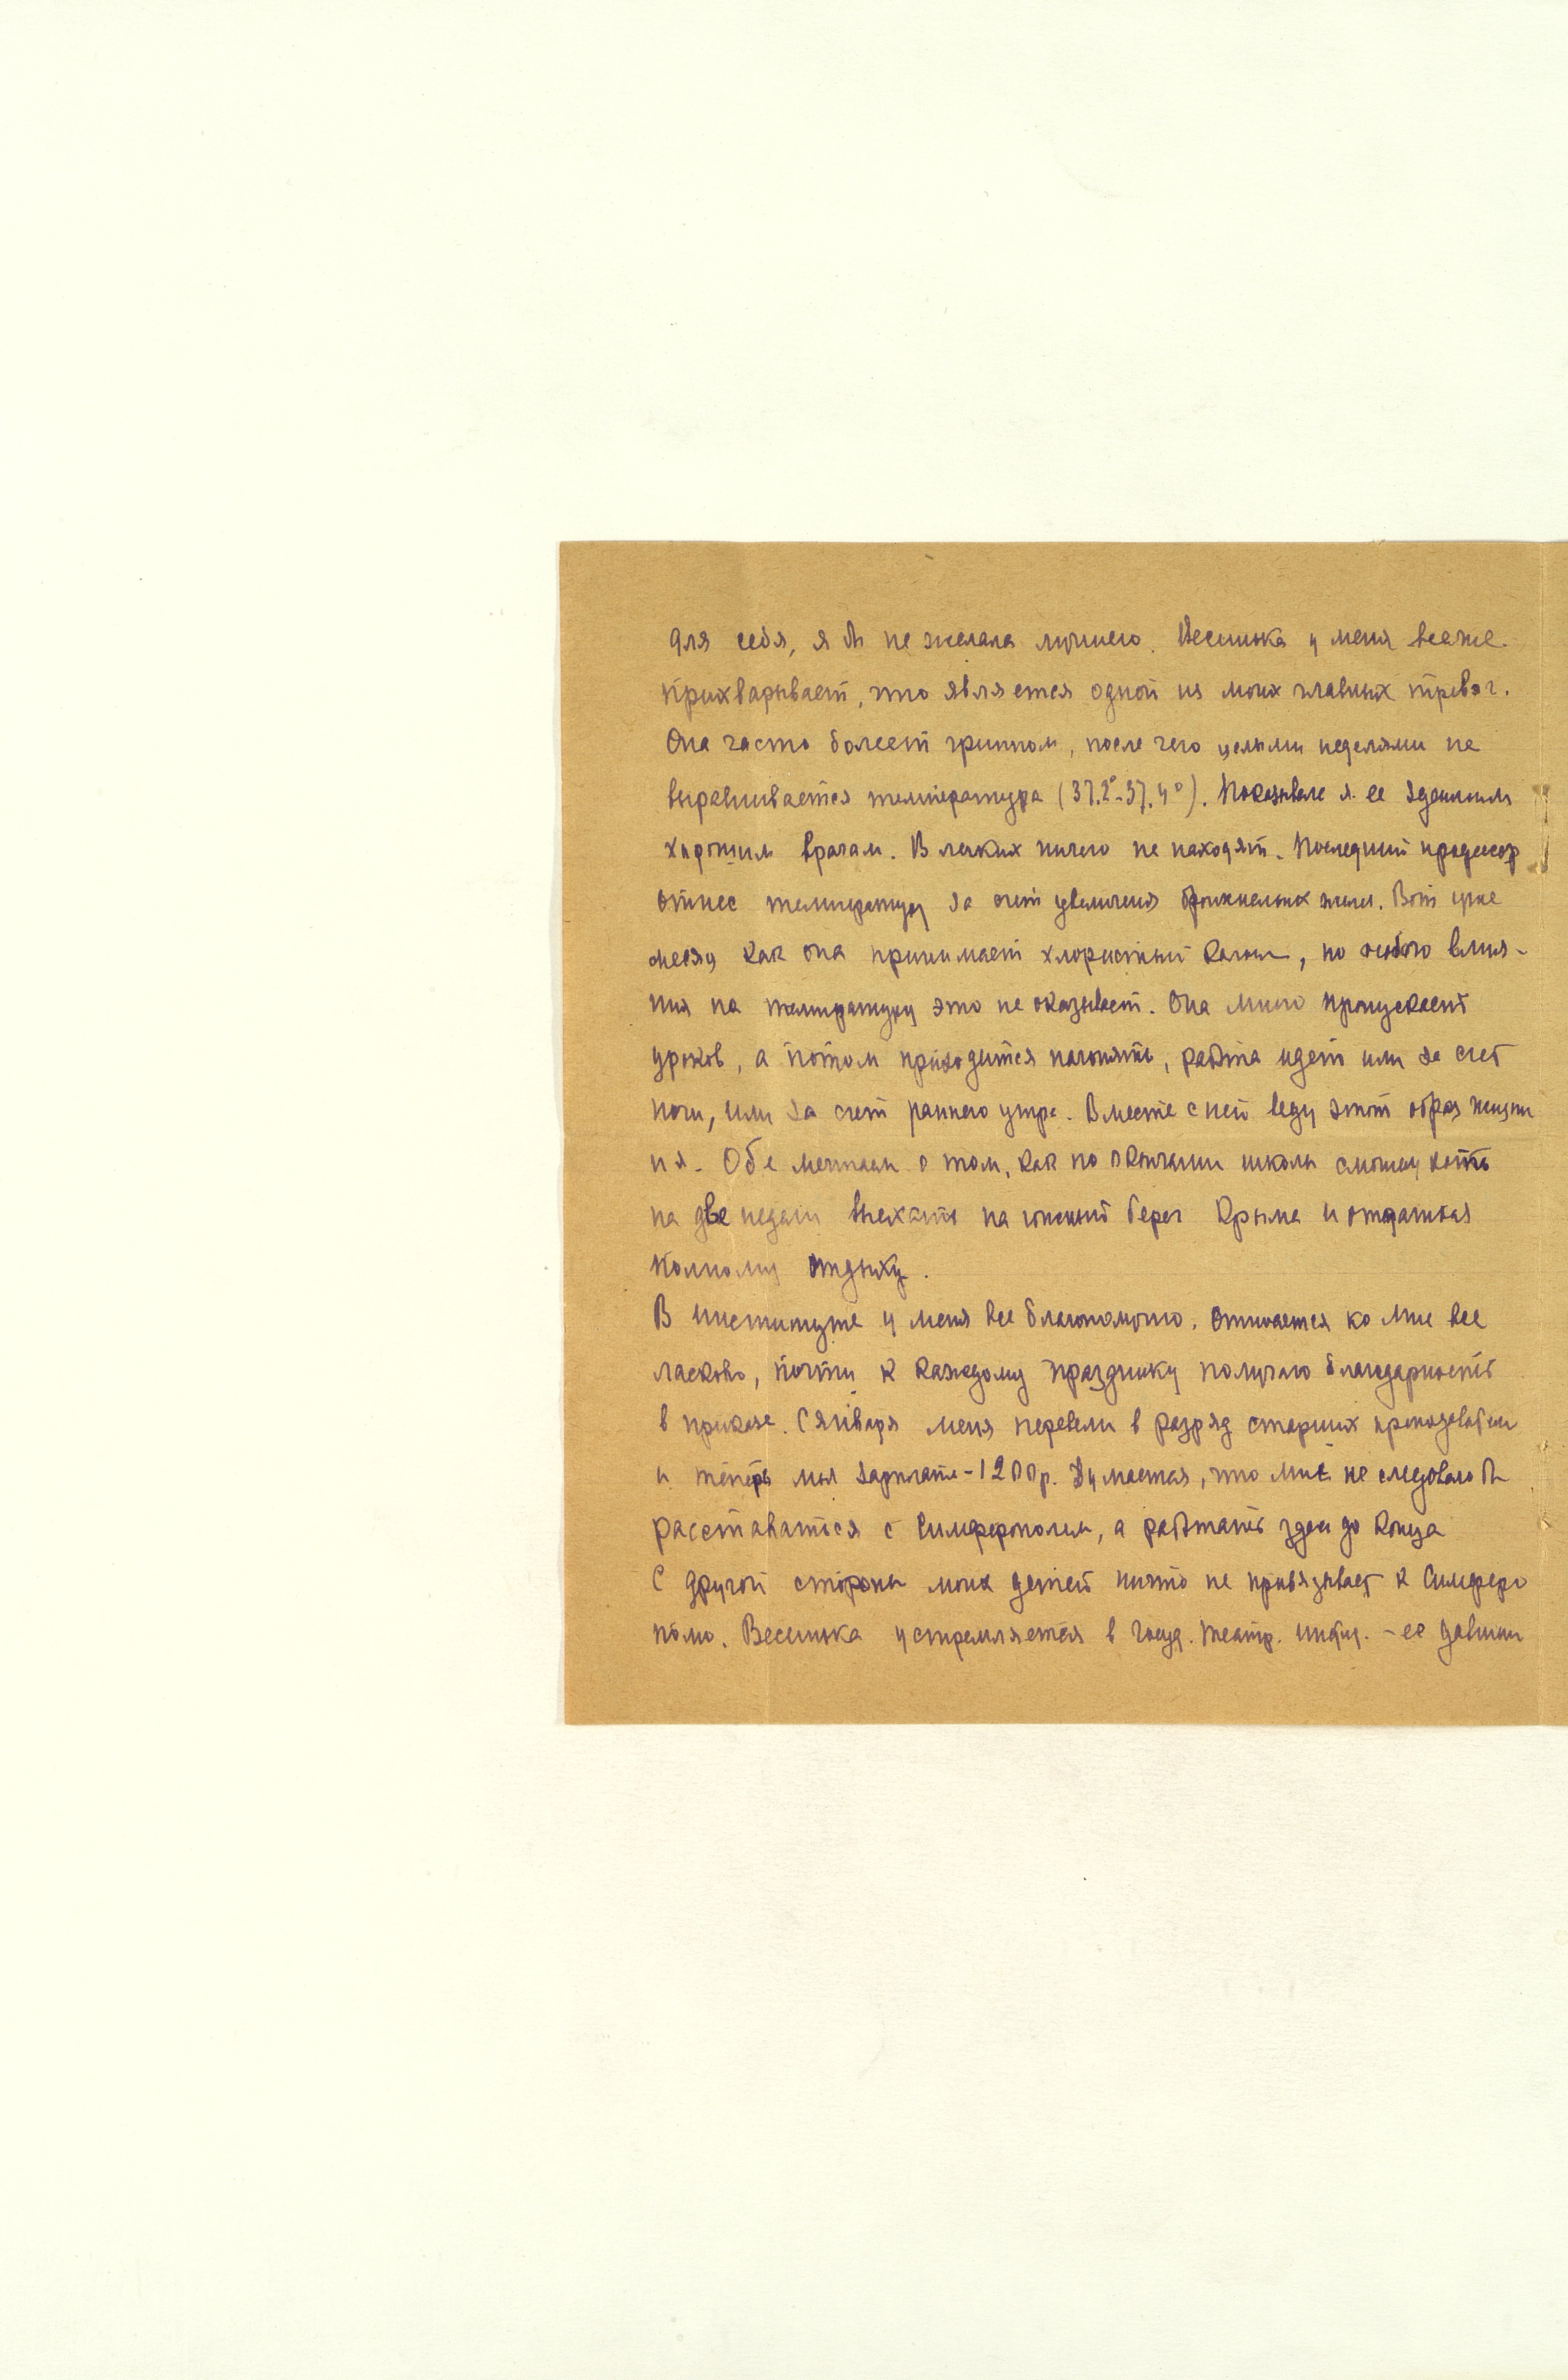 для себя, я бы не желала лучшего. Веснинка у меня все же
прихварывает, что является одной из моих главных тревог.
Она часто болеет гриппом, после чего целыми неделями не
выравнивается температура (37.2°-37.4°). Показывала я ее здешним
хорошим врачам. В легких ничего не находят. Последний профессор
отнес температуру за счет увеличения бронхиальных желез. Вот уже
месяц как она принимает хлористый кальц, но особого влия-
ния на температуру это не оказывает. Она много пропускает
уроков, а потом приходится нагонять, работа идет или за счет
ночи, или за счет раннего утра. Вместе с ней веду этот образ жизни
и я. Обе мечтаем о том, как по окончании школы сможем хоть
на две недели выехать на южный берег Крыма и отдаться
полному отдыху.
В институте у меня все благополучно. Относятся ко мне все
ласково, почти к каждому празднику получаю благодарность
в приказе. С января меня перевели в разряд старших преподавателей
и теперь моя зарплата - 1200 р. Думается, что мне не следовало бы
расставаться с Симферополем, а работать здесь до конца
С другой стороны моих детей ничто не привязывает к Симферо
полю. Веснинка устремляется в госуд. театр. инстит. - ее давний